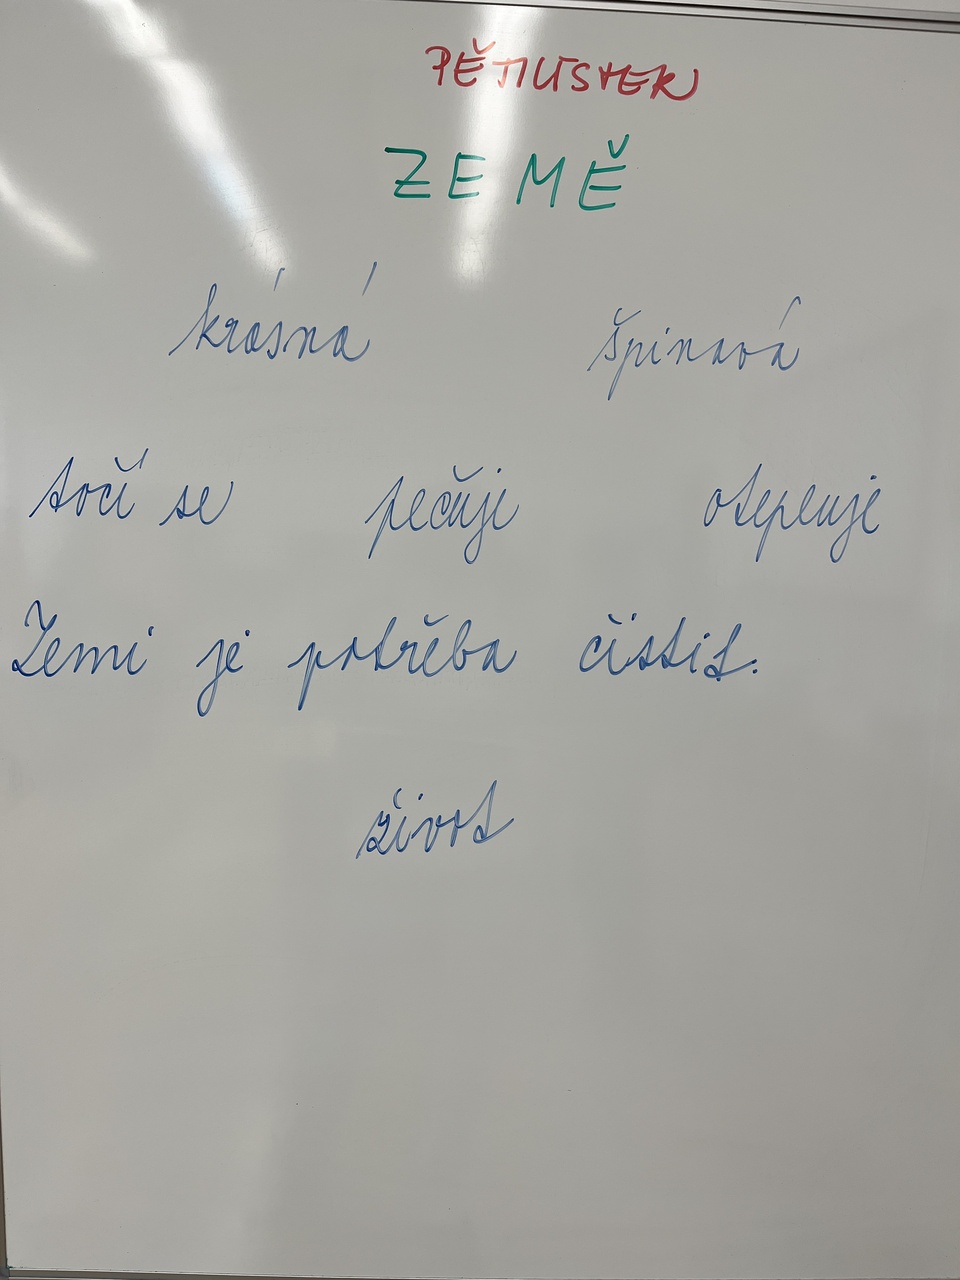 PĚTILÍSTEK
ZEMĚ
krásná špinavá
točí se pečuje otepluje
Zemi je potřeba čistit.
život